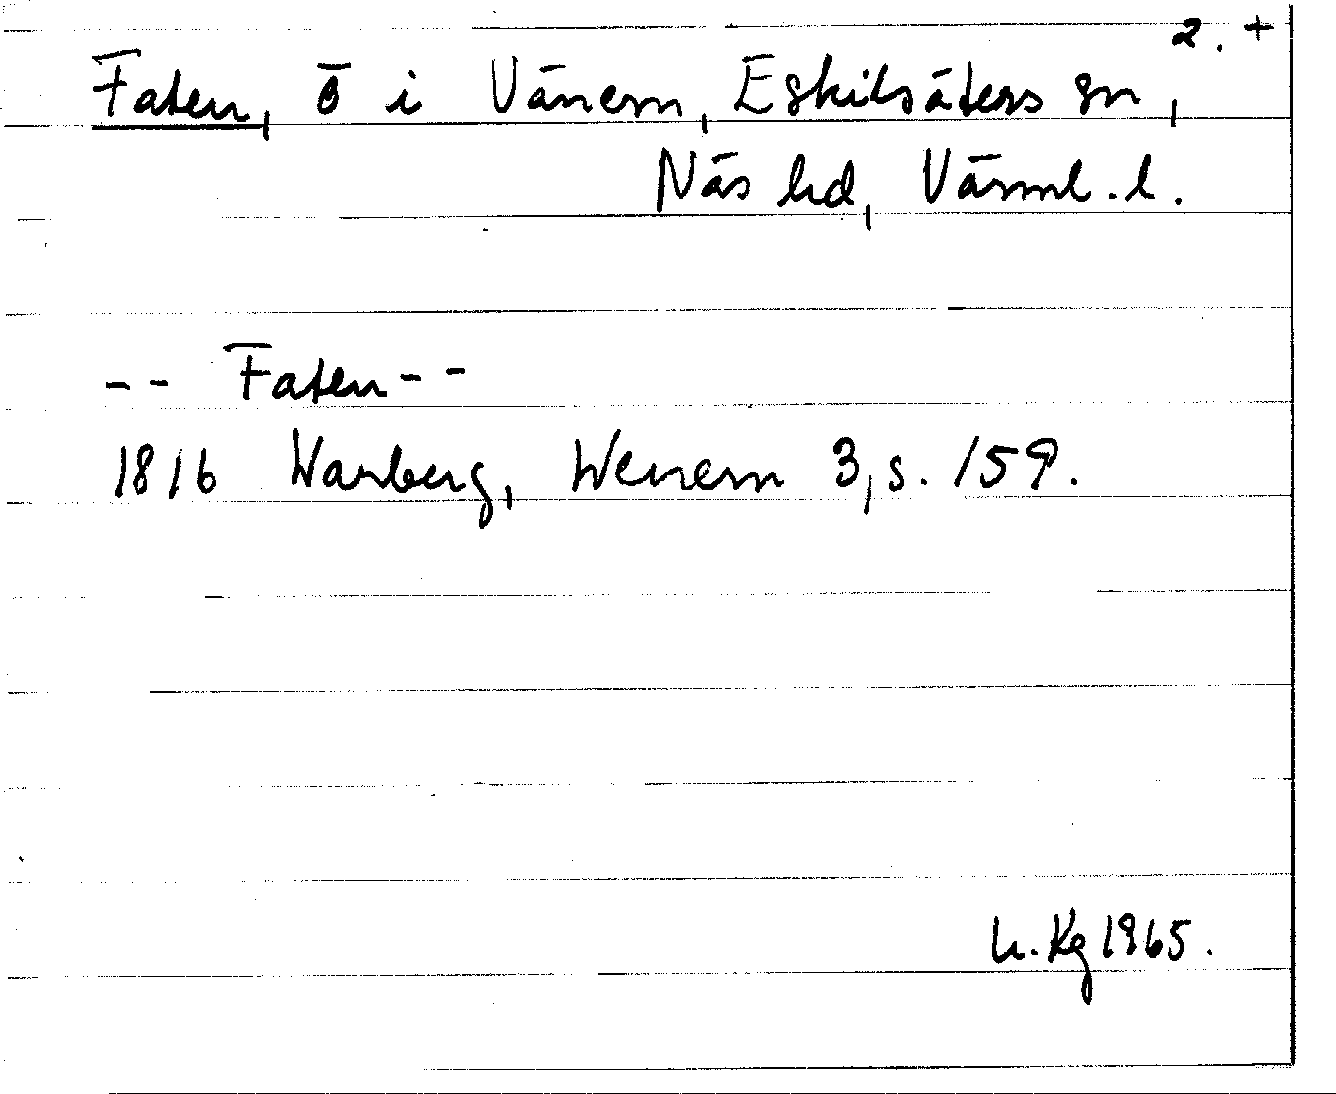 2. +
Faten, ö i Vänern, Eskilsäters sn,
Näs hd, Värml. l.
-- Faten --
1816 Warberg, Wenern 3, s. 159.
h. Kg 1965.